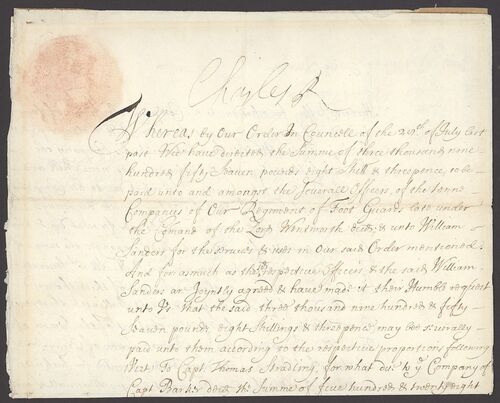 Charles R
Whereas by Our Order In Councele of the 29th of July last
past Wee have directed the Summe of three thousand nine
hundred fifty seaven pounds eight Shill: & three pence, to be
paid unto and amongst the severall Officers of the tenne
Companies of Our Regiment of Foot Guards late under
the Comand of the Lord Wentworth decd; & unto William
Sanders for the services & uses in Our said Order mentioned.
And for asmuch as the respective Officers & the said William
Sanders ar Joyntly agreed & have made it their Humble request
unto Us that the said three thousand nine hundred & fifty
seaven pounds eight Shillings & three pence may bee severally
paid unto them according to the respective proportions following
Vizt. To Capt Thomas Stradling, for what due to ye Company of
Capt Barker decd the Summe of five hundred & twenty eight